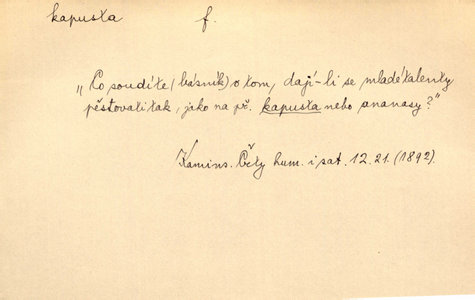 kapusta f.
„Co soudíte (básník) o tom, dají-li se mladé talenty
pěstovati tak, jako na př. kapusta nebo ananasy?"
Kamins. Čěty hum. i sat. 12.21. (1892).